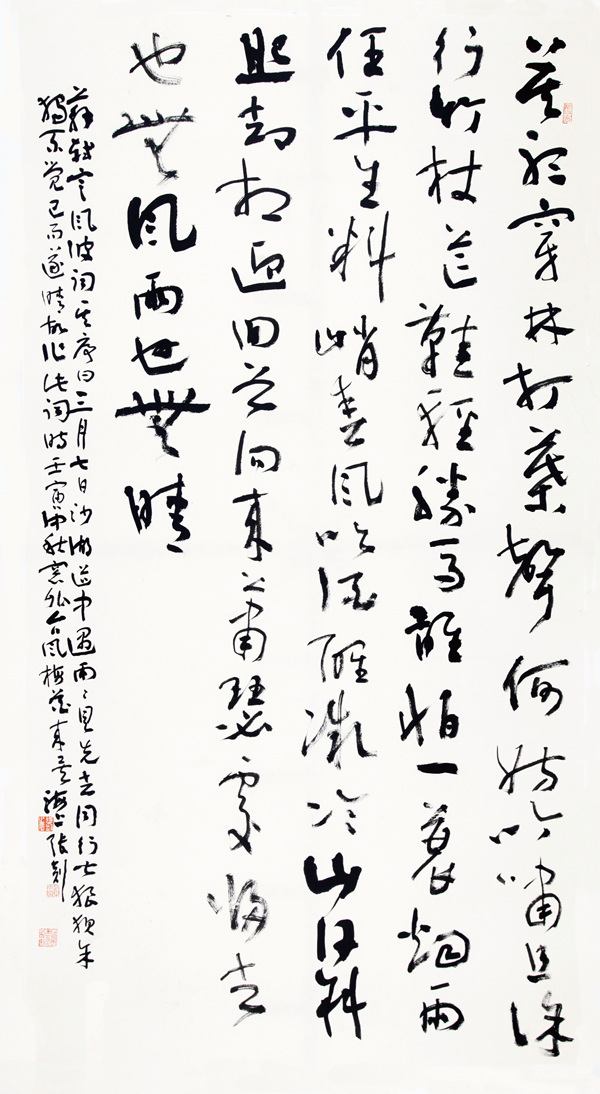 莫聽穿林打葉聲何妨吟嘯且徐
行竹杖芒鞵輕勝馬誰怕一蓑烟雨
任平生料峭春風吹酒醒微冷山頭斜
照却相迎回首向來蕭瑟處歸去
也無風雨也無晴
蘇軾定風波詞其序曰三月七日沙湖道中遇雨〻具先去同行皆狼狽余
獨不覺已而遂晴故作此詞時壬寅中秋窓外台風梅花來 海上張劍